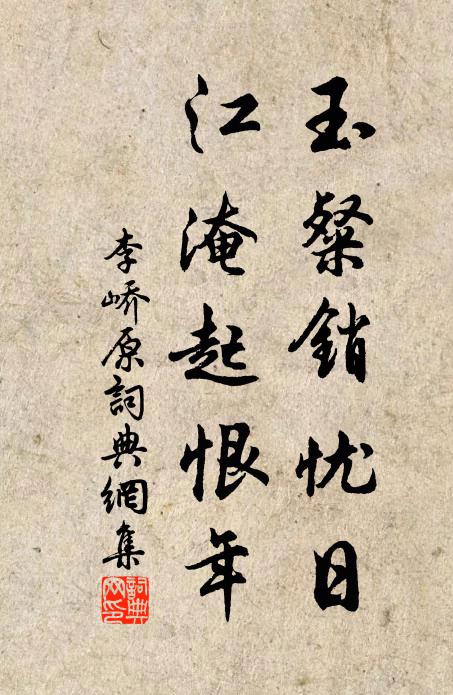 玉粲销忧日
江淹起恨年
李峤原詞典網集
詞典
网印